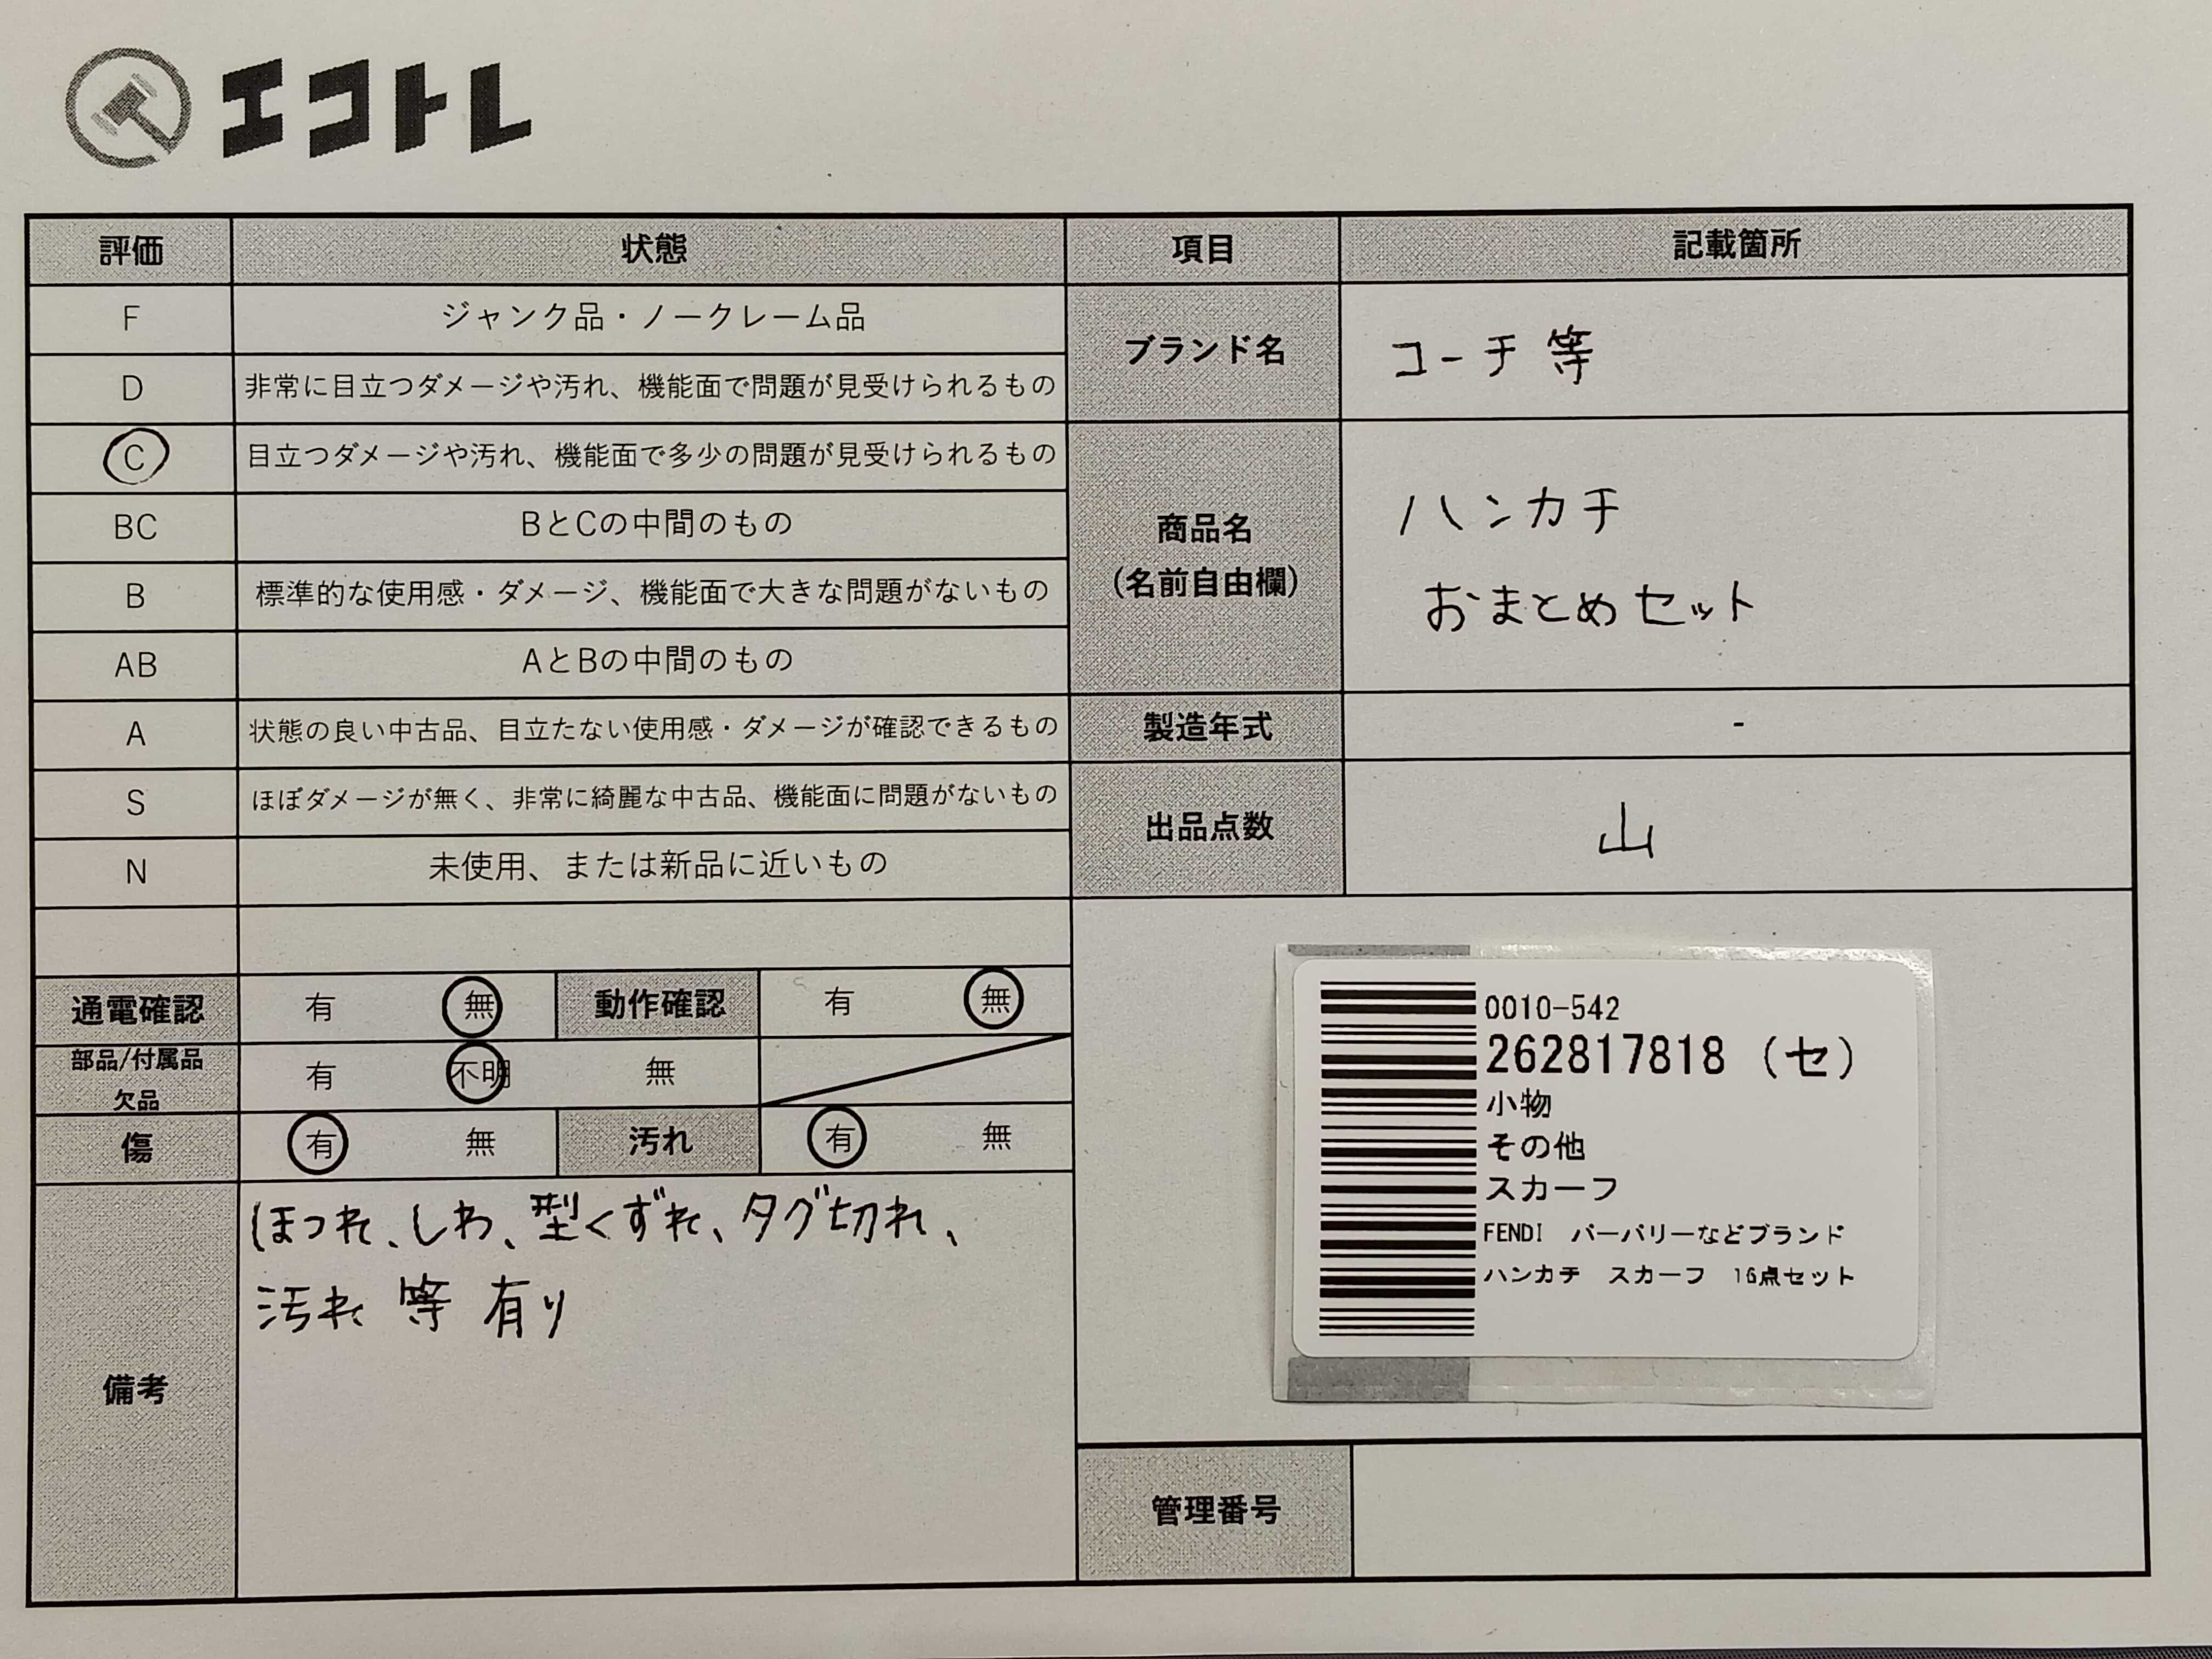 エコトレ
評価 状態 項目 記載箇所
F ジャンク品・ノークレーム品
D 非常に目立つダメージや汚れ、機能面で問題が見受けられるもの
C 目立つダメージや汚れ、機能面で多少の問題が見受けられるもの
BC BとCの中間のもの
B 標準的な使用感・ダメージ、機能面で大きな問題がないもの
AB AとBの中間のもの
A 状態の良い中古品、目立たない使用感・ダメージが確認できるもの
S ほぼダメージが無く、非常に綺麗な中古品、機能面に問題がないもの
N 未使用、または新品に近いもの
ブランド名 コーチ等
商品名
(名前自由欄)
ハンカチ
おまとめセット
製造年式 -
出品点数 山
通電確認 有 無 動作確認 有 無
部品/付属品
欠品
有 不明 無
傷 有 無 汚れ 有 無
備考
ほつれ、しわ、型くずれ、タグ切れ、
汚れ 等 有り
0010-542
262817818 (セ)
小物
その他
スカーフ
FENDI バーバリーなどブランド
ハンカチ スカーフ 16点セット
管理番号